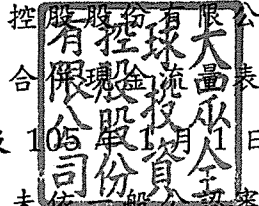 控股股份有限公
合併現金流量表
105 年 1 月 1 日
未依一般公認審
球投資
控股股份
有限公司